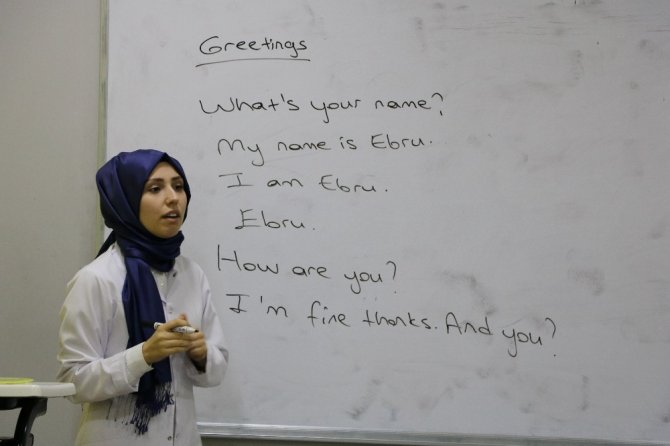 Greetings
What's your name?
My name is Ebru.
I am Ebru.
Ebru.
How are you?
I'm fine thanks. And you?